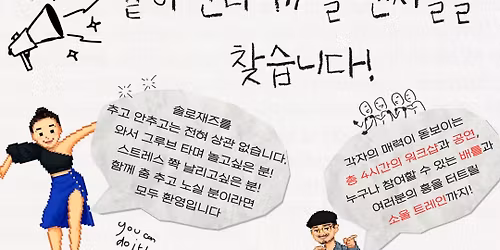 찾습니다!
솔로재즈를
추고 안추고는 전혀 상관 없습니다.
와서 그루브 타며 놀고싶은 분!
스트레스 쫙 날리고싶은 분!
함께 춤 추고 노실 분이라면
모두 환영입니다
you can
do it!
각자의 매력이 돋보이는
총 4시간의 워크샵과 공연,
누구나 참여할 수 있는 배틀과
여러분의 흥을 터트릴
소울 트레인까지!